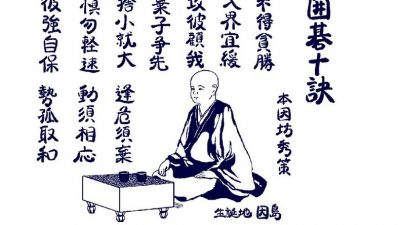 囲碁十訣
本因坊秀策
不得貪勝
入界宜緩
攻彼顧我
棄子争先
捨小就大 逢危須棄
慎勿軽速 動須相応
彼強自保 勢孤取和
生誕地 因島